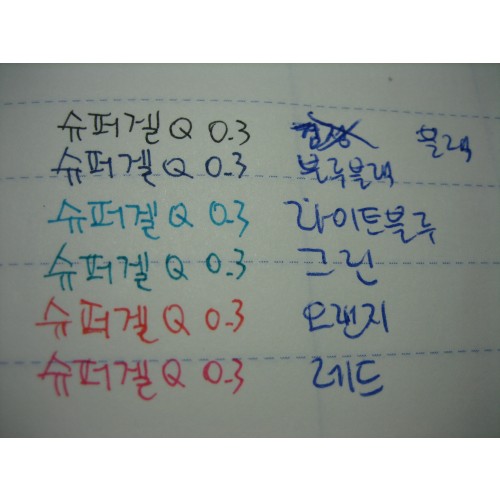 슈퍼겔 Q 0.3 검정 블랙
슈퍼겔 Q 0.3 블루블랙
슈퍼겔 Q 0.3 라이트블루
슈퍼겔 Q 0.3 그린
슈퍼겔 Q 0.3 오랜지
슈퍼겔 Q 0.3 레드